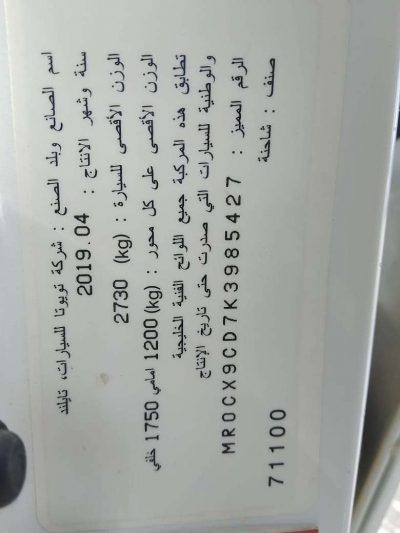 اسم الصانع وبلد الصنع : شركة تويوتا للسيارات، تايلند
سنة وشهر الانتاج : 2019.04
الوزن الأقصى للسيارة : (kg) 2730
الوزن الأقصى على كل محور : (kg) 1200 امامي 1750 خلفي
تطابق هذه المركبة جميع اللوائح الفنية الخليجية
والوطنية للسيارات التي صدرت حتى تاريخ الإنتاج
الرقم المميز : MR0CX9CD7K3985427
صنف : شاحنة
71100